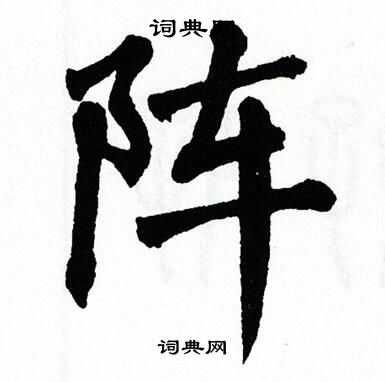 词典网
阵
词典网